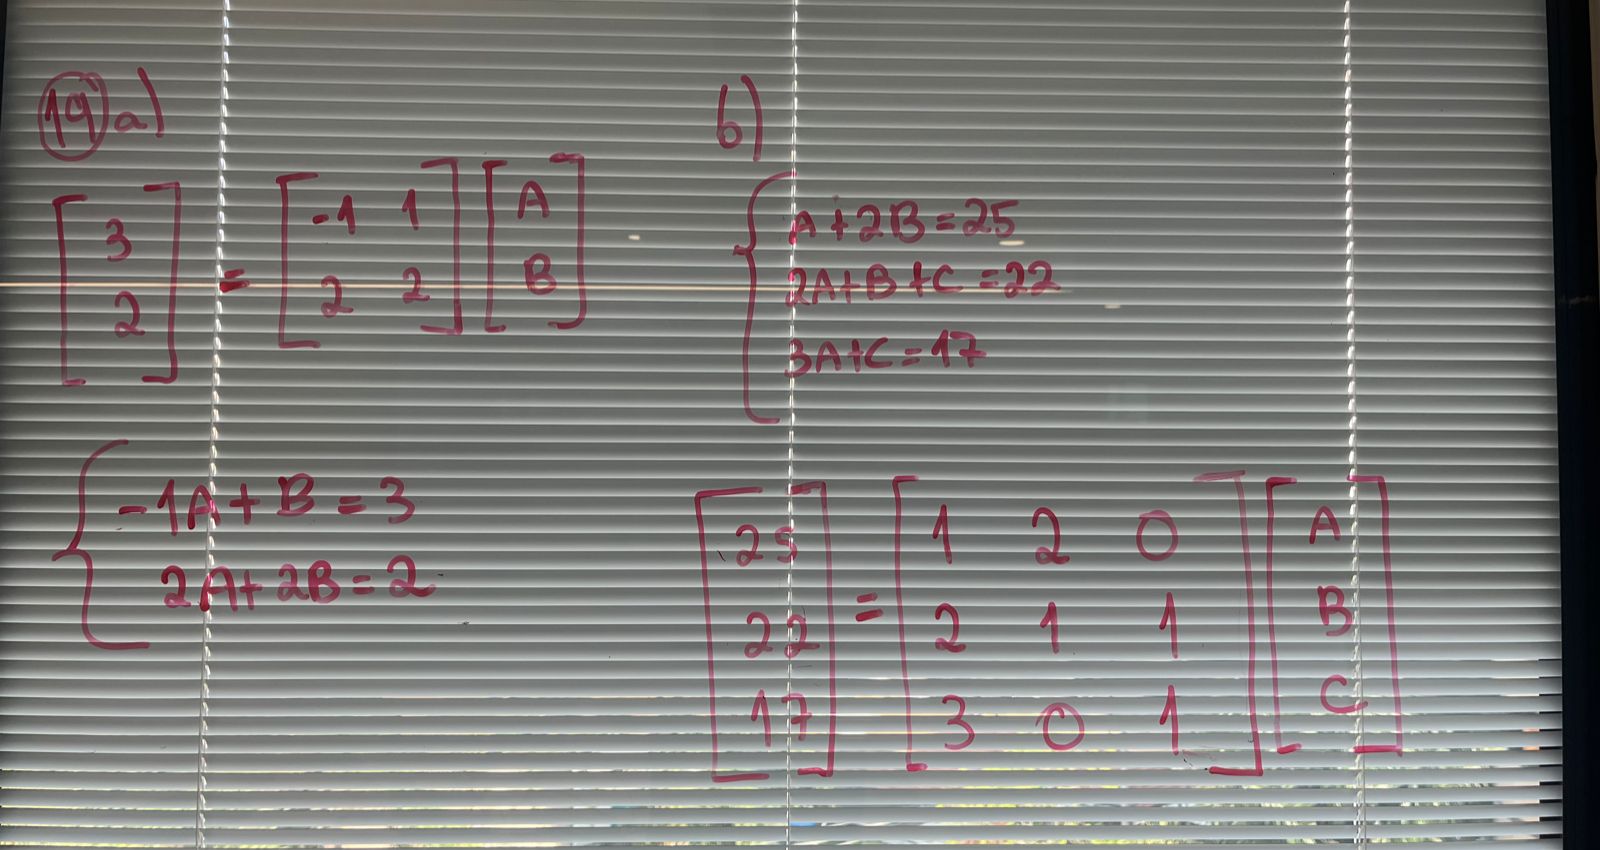 19 a)
[3 2] = [-1 1 2 2] [A B]
{ -1A + B = 3
2A + 2B = 2
b)
{ A + 2B = 25
2A + B + C = 22
3A + C = 17
[25 22 17] = [1 2 0 2 1 1 3 0 1] [A B C]